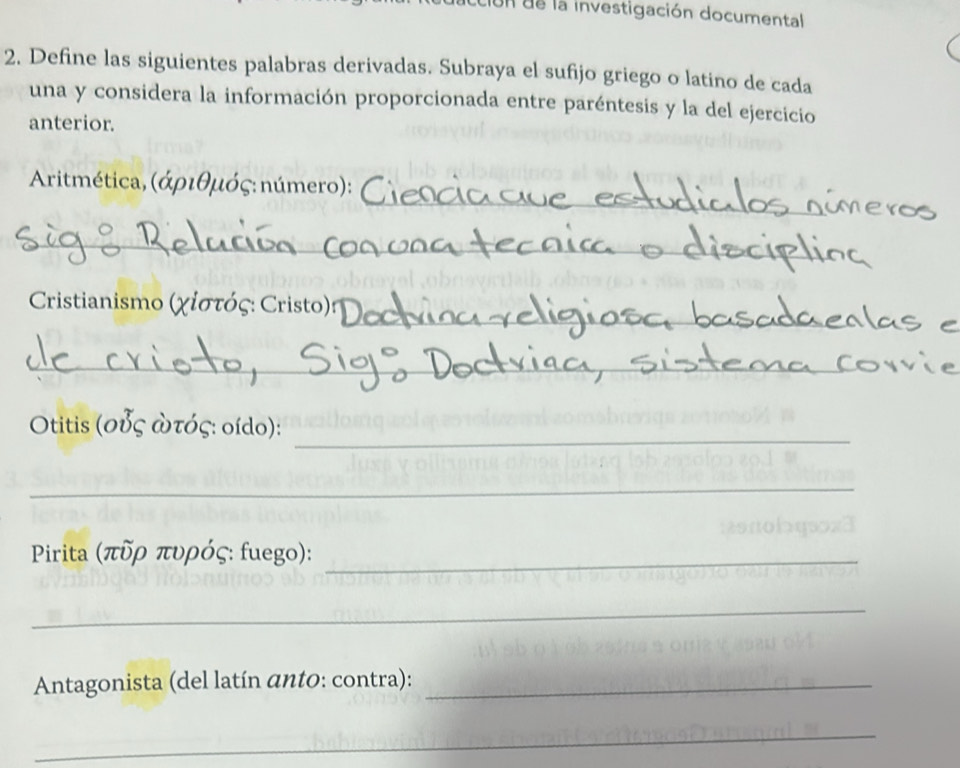 de la investigación documental
2. Define las siguientes palabras derivadas. Subraya el sufijo griego o latino de cada
una y considera la información proporcionada entre paréntesis y la del ejercicio
anterior.
Aritmética, (άριθμός: número): Ciencia que estudia los números
sig: Relación con una tecnica o disciplina
Cristianismo (χίστός: Cristo): Doctrina religiosa basada en las e
de cristo, Sig: Doctrina, sistema corrie
Otitis (οὖς ὠτός: oído):
Pirita (πῦρ πυρός: fuego):
Antagonista (del latín anto: contra):